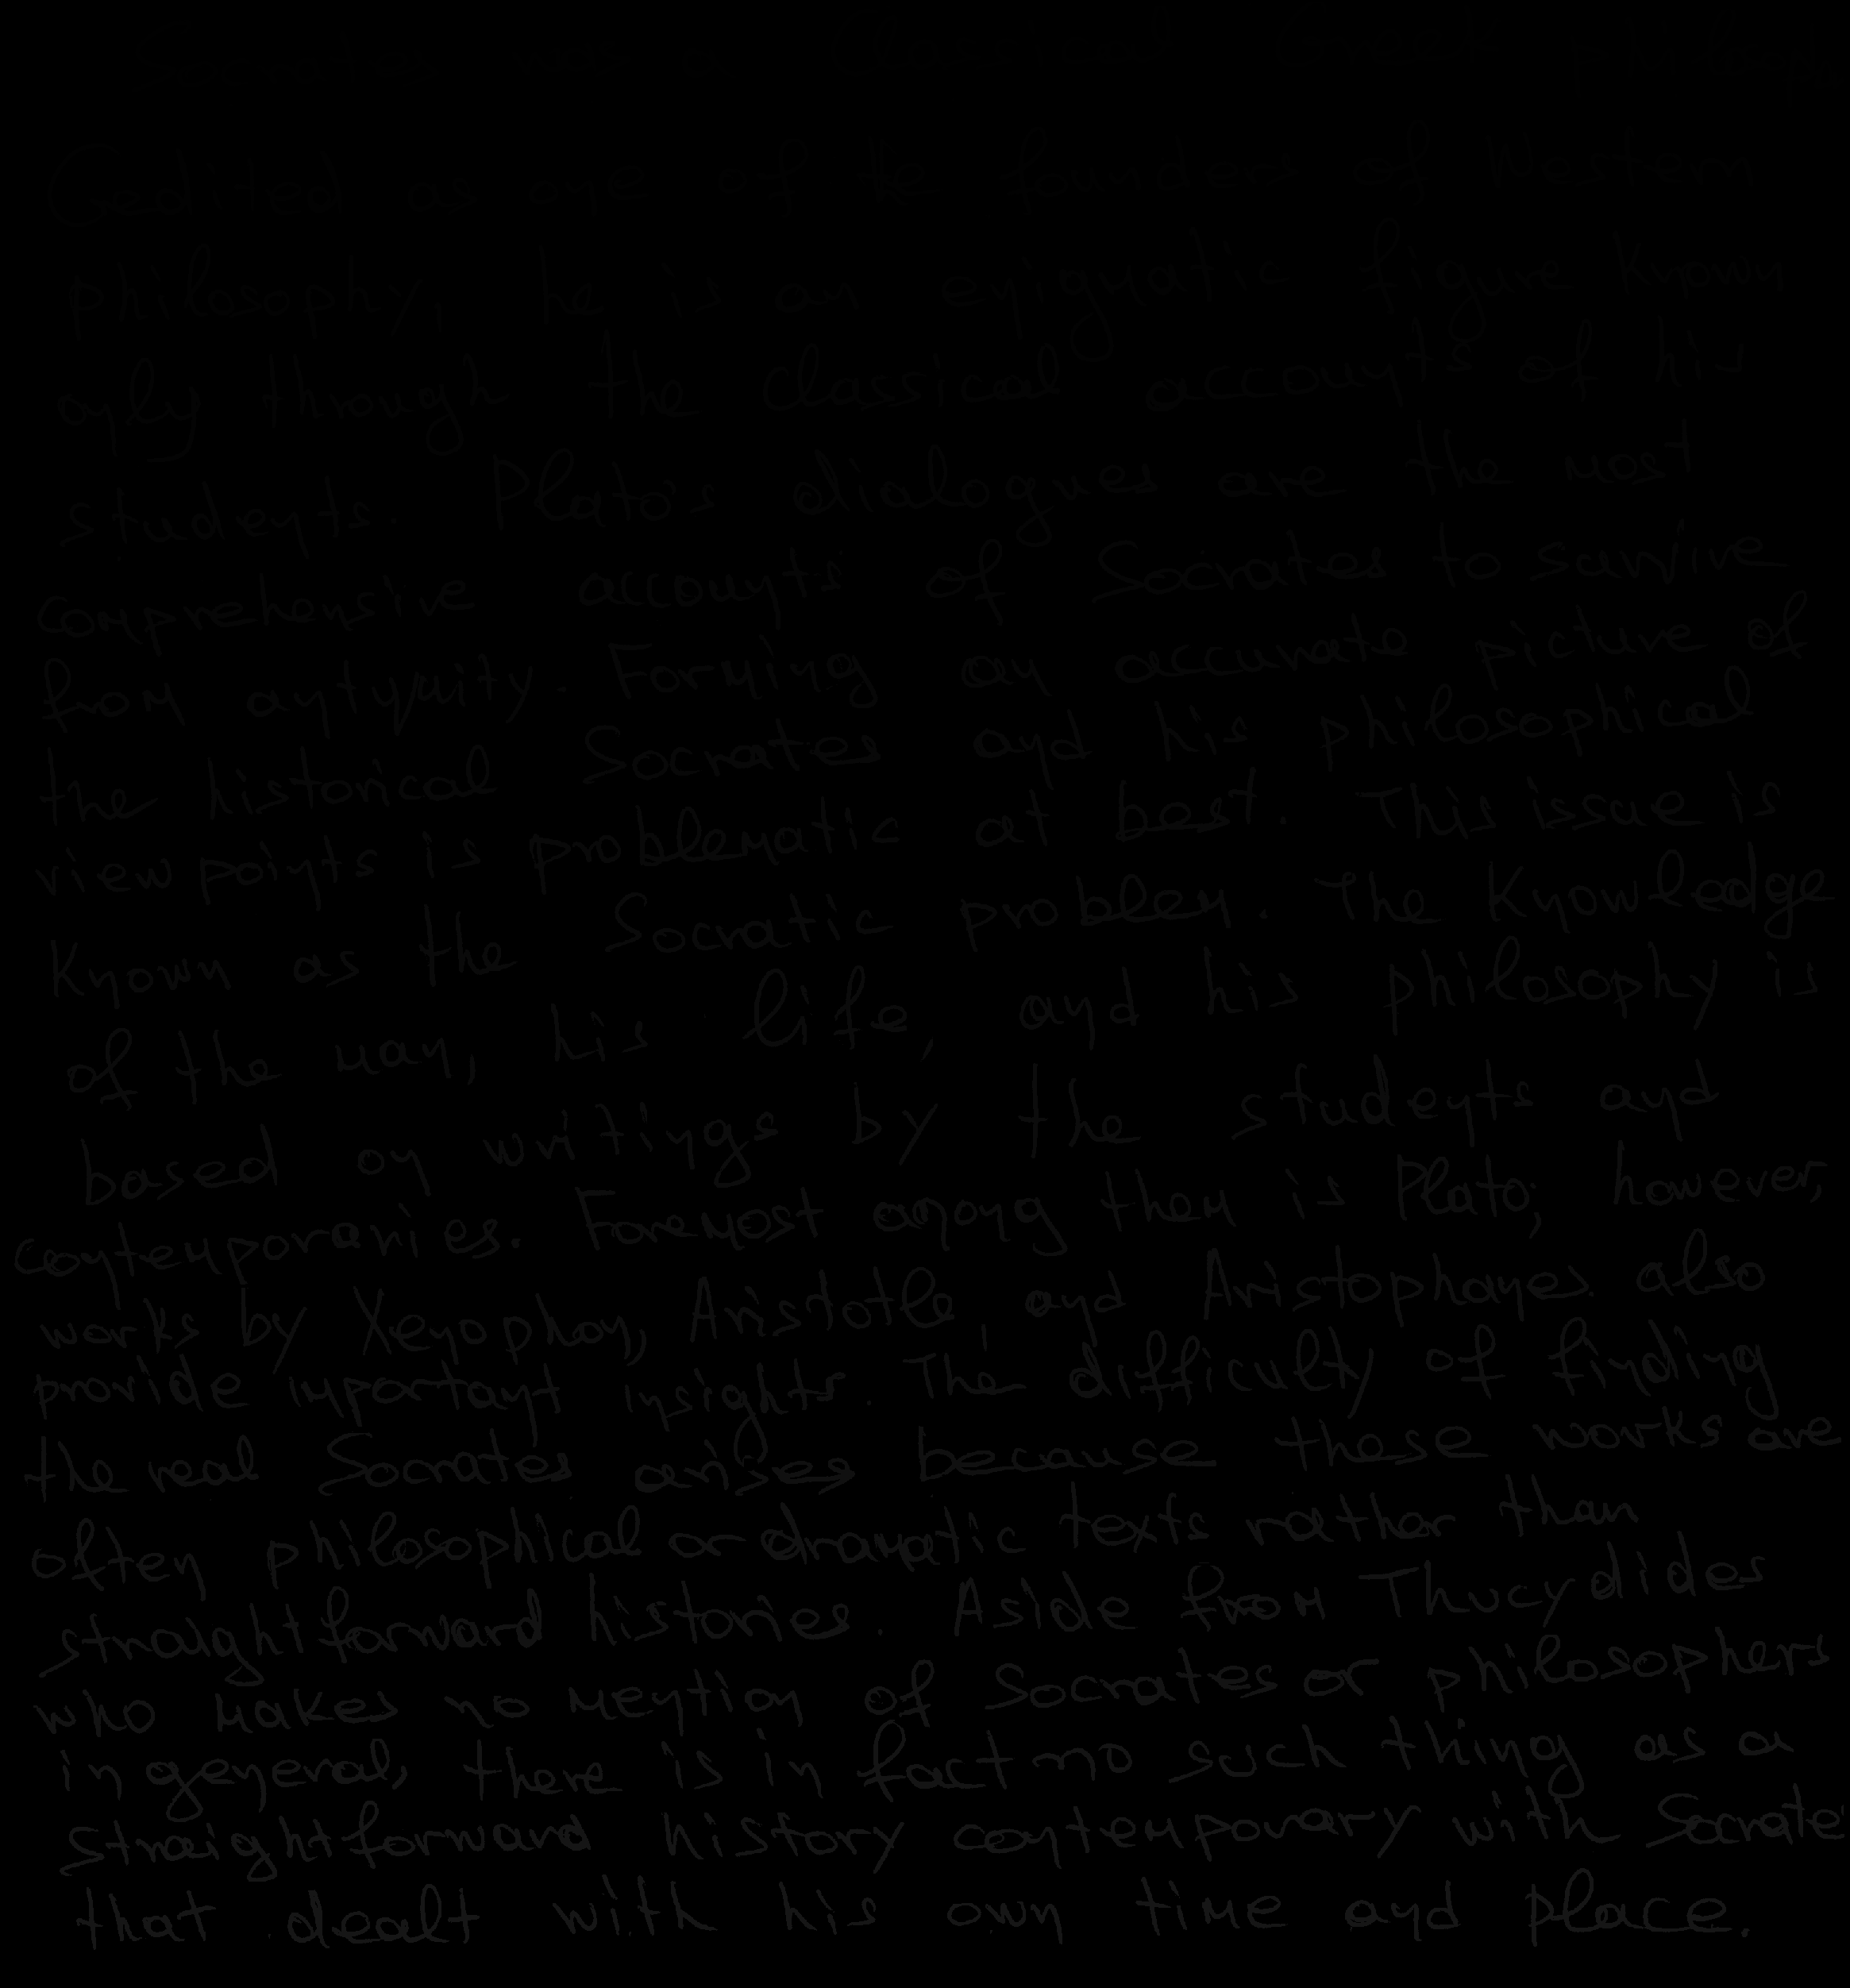 Credited as one of the founders of Western
philosophy, he is an enigmatic figure known
only through the classical accounts of his
students. Plato's dialogues are the most
comprehensive accounts of Socrates to survive
from antyquity. Forming an accurate picture of
the historical Socrates and his philosophical
viewpoints is problematic at best. This issue is
known as the Socratic problem. The knowledge
of the man, his life, and his philosophy is
based on writings by the students and
contemporaries. Foremost among them is Plato; however,
works by Xenophon, Aristotle, and Aristophanes also
provide important insights. The difficulty of finding
the real Socrates arises because these works are
often philosophical or dramatic texts rather than
straightforward histories. Aside from Thucydides
who makes no mention of Socrates or philosophers
in general, there is in fact no such thing as a
straightforward history contemporary with Socrate
that dealt with his own time and place.